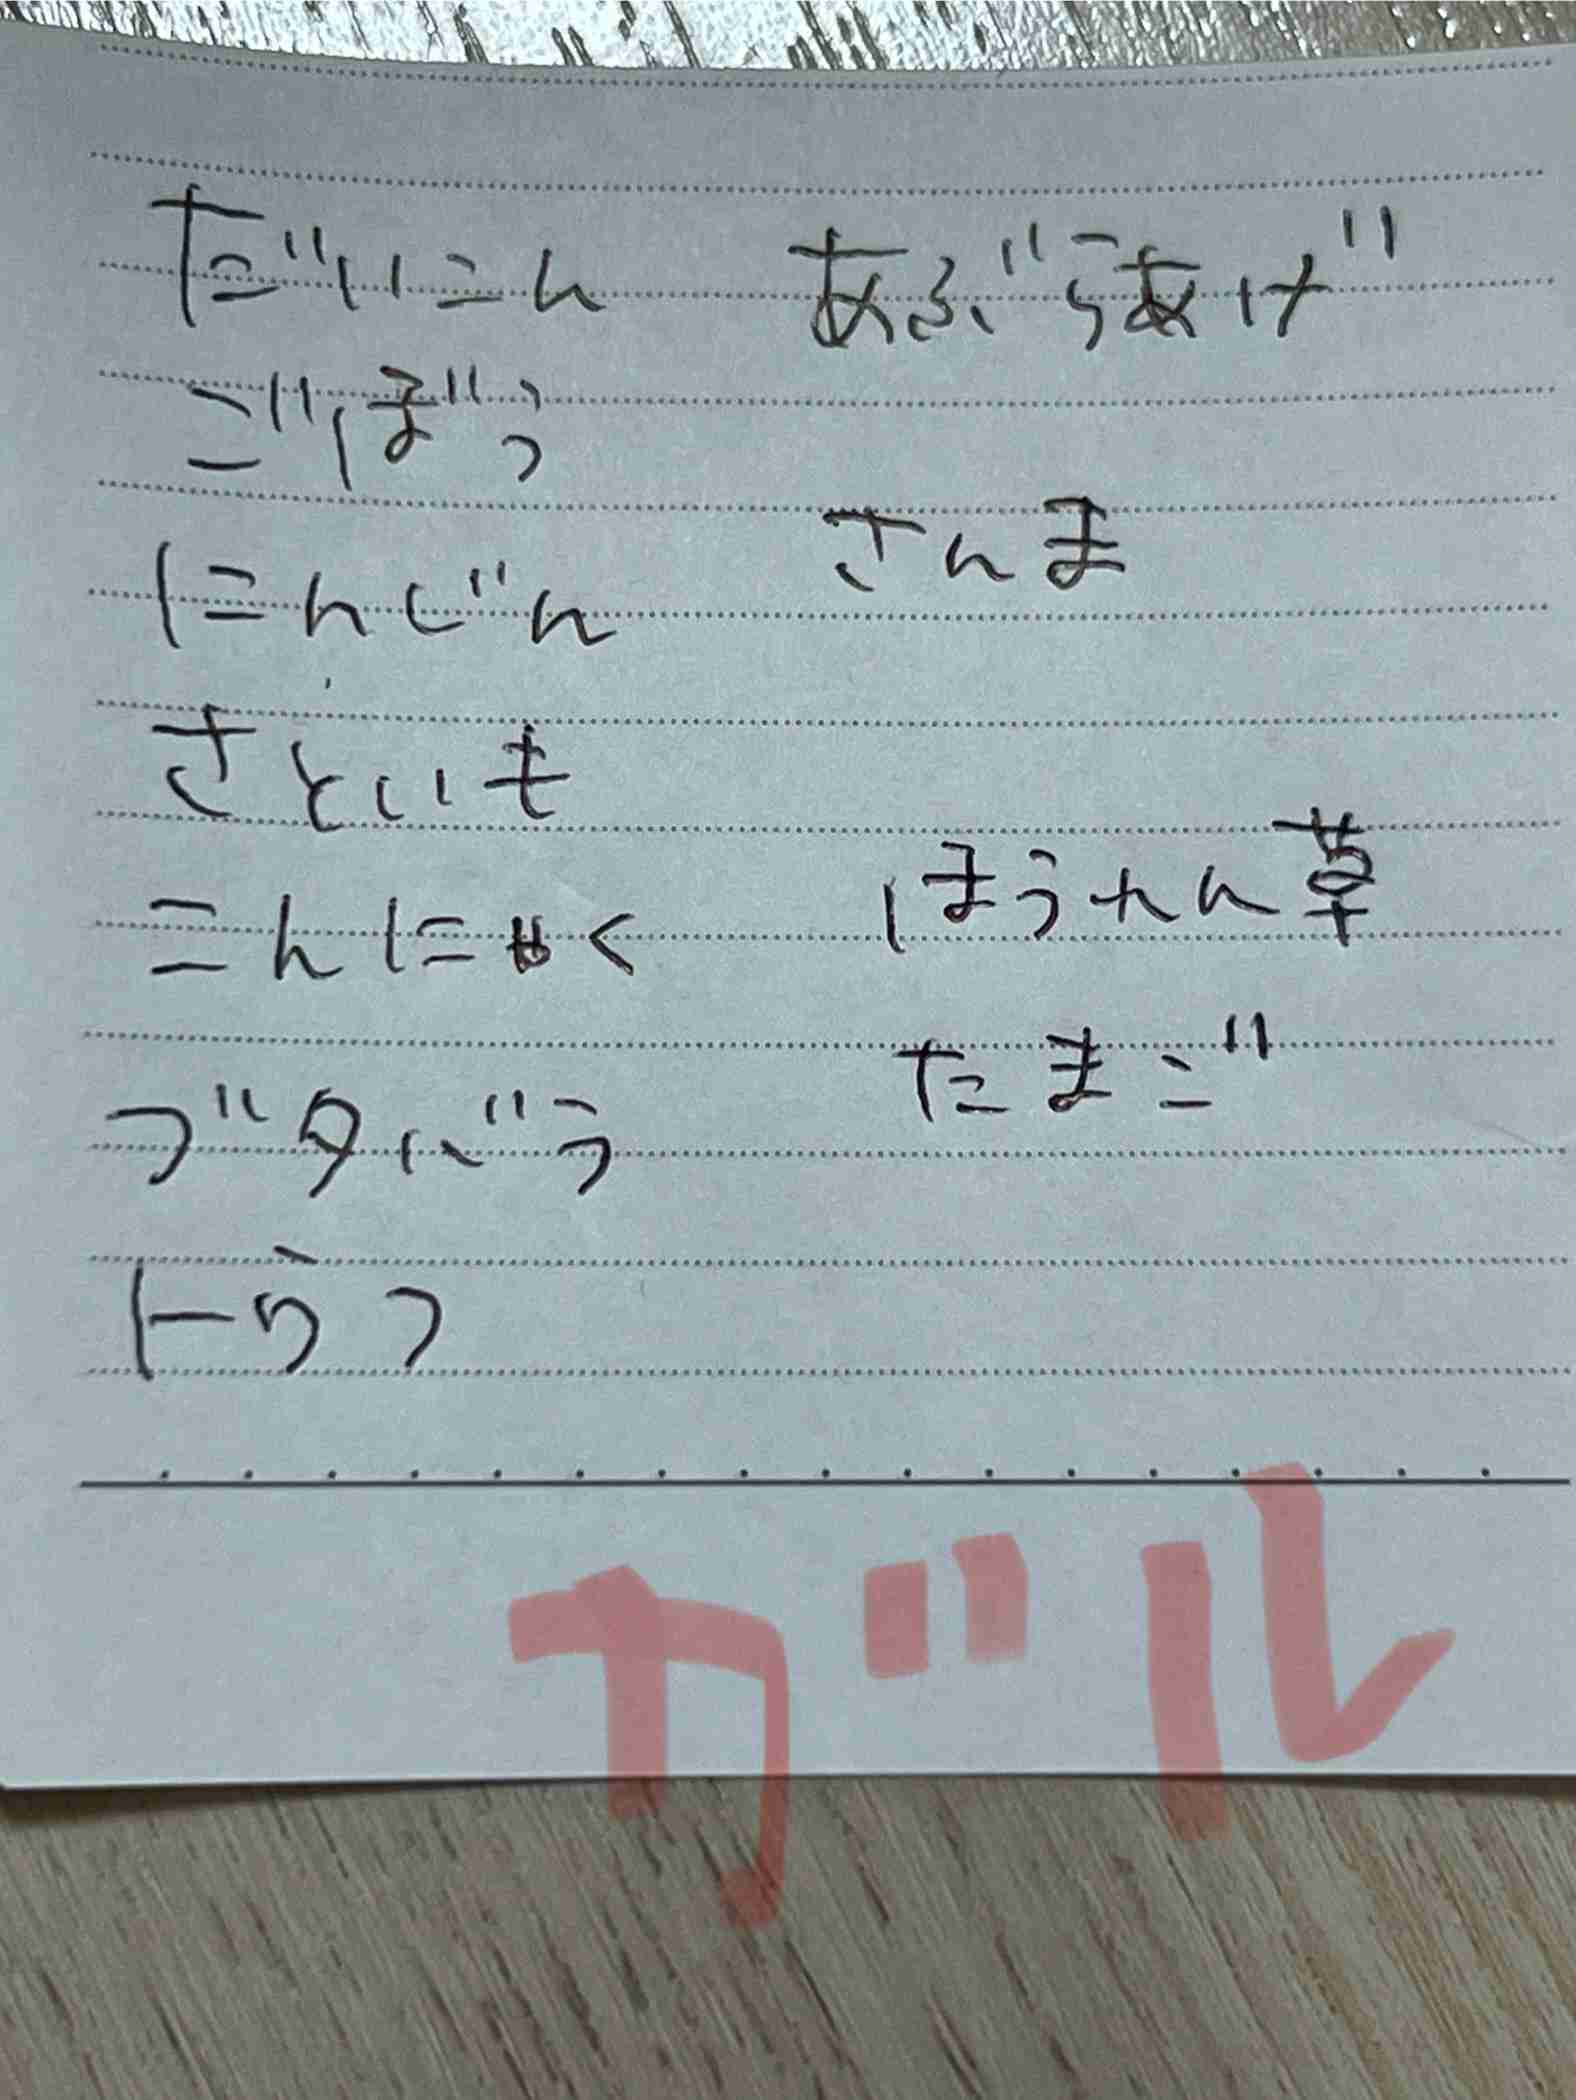 だいこん
ごぼう
にんじん
さといも
こんにゃく
ブタバラ
トウフ
あぶらあげ
さんま
ほうれん草
たまご
ガル